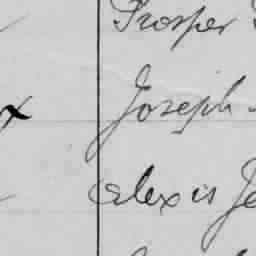 Prosper
x Joseph
Alexis Je